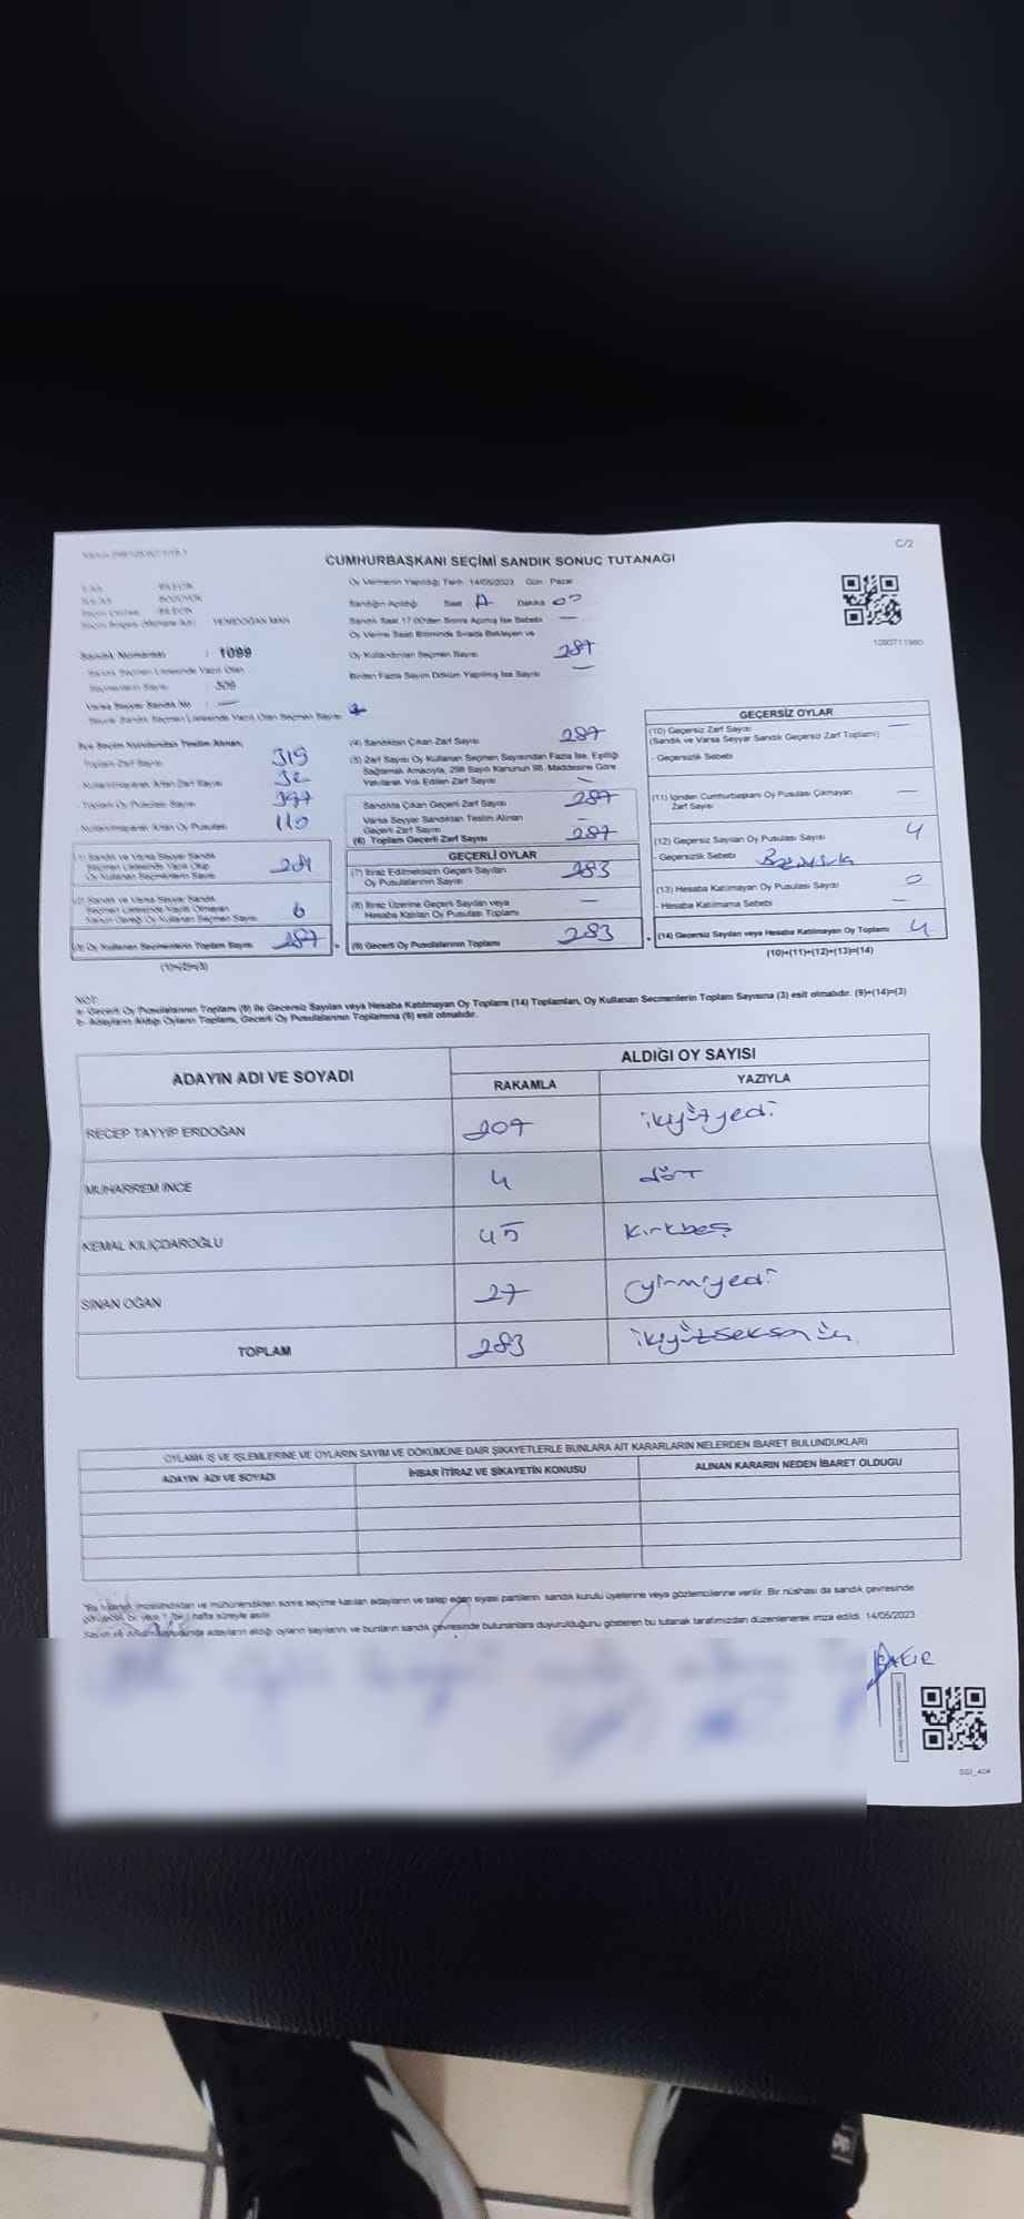 C/2
CUMHURBAŞKANI SEÇİMİ SANDIK SONUÇ TUTANAĞI
Oy Vermenin Yapıldığı Tarih 14/05/2023 Gün Pazar
Sandığın Açıldığı Saat Dakika
Sandık Saat 17.00'den Sonra Açılmış İse Sebebi —
Oy Verme Saati Bitiminde Sırada Bekleyen ve
Oy Kullandırılan Seçmen Sayısı 287
Birden Fazla Sayım Döküm Yapılmış İse Sayısı —
YENİDOĞAN MAH
: 1099
Varsa Seyyar Sandık No : —
Seyyar Sandık Seçmen Listesinde Yazılı Olan Seçmen Sayısı
İlçe Seçim Kurulundan Teslim Alınan,
Toplam Zarf Sayısı 319
Kullanılmayarak Artan Zarf Sayısı 32
Toplam Oy Pusulası Sayısı 397
Kullanılmayarak Artan Oy Pusulası 110
(1) Sandık ve Varsa Seyyar Sandık
Seçmen Listesinde Yazılı Olup
Oy Kullanan Seçmenlerin Sayısı 281
(2) Sandık ve Varsa Seyyar Sandık
Seçmen Listesinde Yazılı Olmayan
Kanun Gereği Oy Kullanan Seçmen Sayısı 6
(3) Oy Kullanan Seçmenlerin Toplam Sayısı 287
(1)+(2)=(3)
(4) Sandıktan Çıkan Zarf Sayısı 287
(5) Zarf Sayısı Oy Kullanan Seçmen Sayısından Fazla İse, Eşitliği
Sağlamak Amacıyla, 298 Sayılı Kanunun 98. Maddesine Göre
Yakılarak Yok Edilen Zarf Sayısı —
Sandıkta Çıkan Geçerli Zarf Sayısı 287
Varsa Seyyar Sandıktan Teslim Alınan
Geçerli Zarf Sayısı —
(6) Toplam Geçerli Zarf Sayısı 287
GEÇERLİ OYLAR
(7) İtiraz Edilmeksizin Geçerli Sayılan
Oy Pusulalarının Sayısı 283
(8) İtiraz Üzerine Geçerli Sayılan veya
Hesaba Katılan Oy Pusulası Toplamı —
(9) Geçerli Oy Pusulalarının Toplamı 283
GEÇERSİZ OYLAR
(10) Geçersiz Zarf Sayısı —
(Sandık ve Varsa Seyyar Sandık Geçersiz Zarf Toplamı)
- Geçersizlik Sebebi
(11) İçinden Cumhurbaşkanı Oy Pusulası Çıkmayan
Zarf Sayısı —
(12) Geçersiz Sayılan Oy Pusulası Sayısı 4
- Geçersizlik Sebebi
(13) Hesaba Katılmayan Oy Pusulası Sayısı 0
- Hesaba Katılmama Sebebi —
(14) Geçersiz Sayılan veya Hesaba Katılmayan Oy Toplamı 4
(10)+(11)+(12)+(13)=(14)
NOT:
a- Geçerli Oy Pusulalarının Toplam (9) ile Geçersiz Sayılan veya Hesaba Katılmayan Oy Toplamı (14) Toplamları, Oy Kullanan Seçmenlerin Toplam Sayısına (3) eşit olmalıdır. (9)+(14)=(3)
b- Adayların Aldığı Oyların Toplamı, Geçerli Oy Pusulalarının Toplamına (9) eşit olmalıdır.
ADAYIN ADI VE SOYADI
ALDIĞI OY SAYISI
RAKAMLA YAZIYLA
RECEP TAYYİP ERDOĞAN 207 ikiyüzyedi
MUHARREM İNCE 4 dört
KEMAL KILIÇDAROĞLU 45 Kırkbeş
SİNAN OĞAN 27 yirmiyedi
TOPLAM 283 ikiyüzseksenüç
OYLAMA İŞ VE İŞLEMLERİNE VE OYLARIN SAYIM VE DÖKÜMÜNE DAİR ŞİKAYETLERLE BUNLARA AİT KARARLARIN NELERDEN İBARET BULUNDUKLARI
ADAYIN ADI VE SOYADI İHBAR İTİRAZ VE ŞİKAYETİN KONUSU ALINAN KARARIN NEDEN İBARET OLDUĞU
sonra seçime katılan adayların ve talep eden siyasi partilerin sandık kurulu üyelerine veya gözlemcilerine verilir. Bir nüshası da sandık çevresinde
adayların aldığı oyların sayılarını ve bunların sandık çevresinde bulunanlara duyurulduğunu gösteren bu tutanak tarafımızdan düzenlenerek imza edildi. 14/05/2023